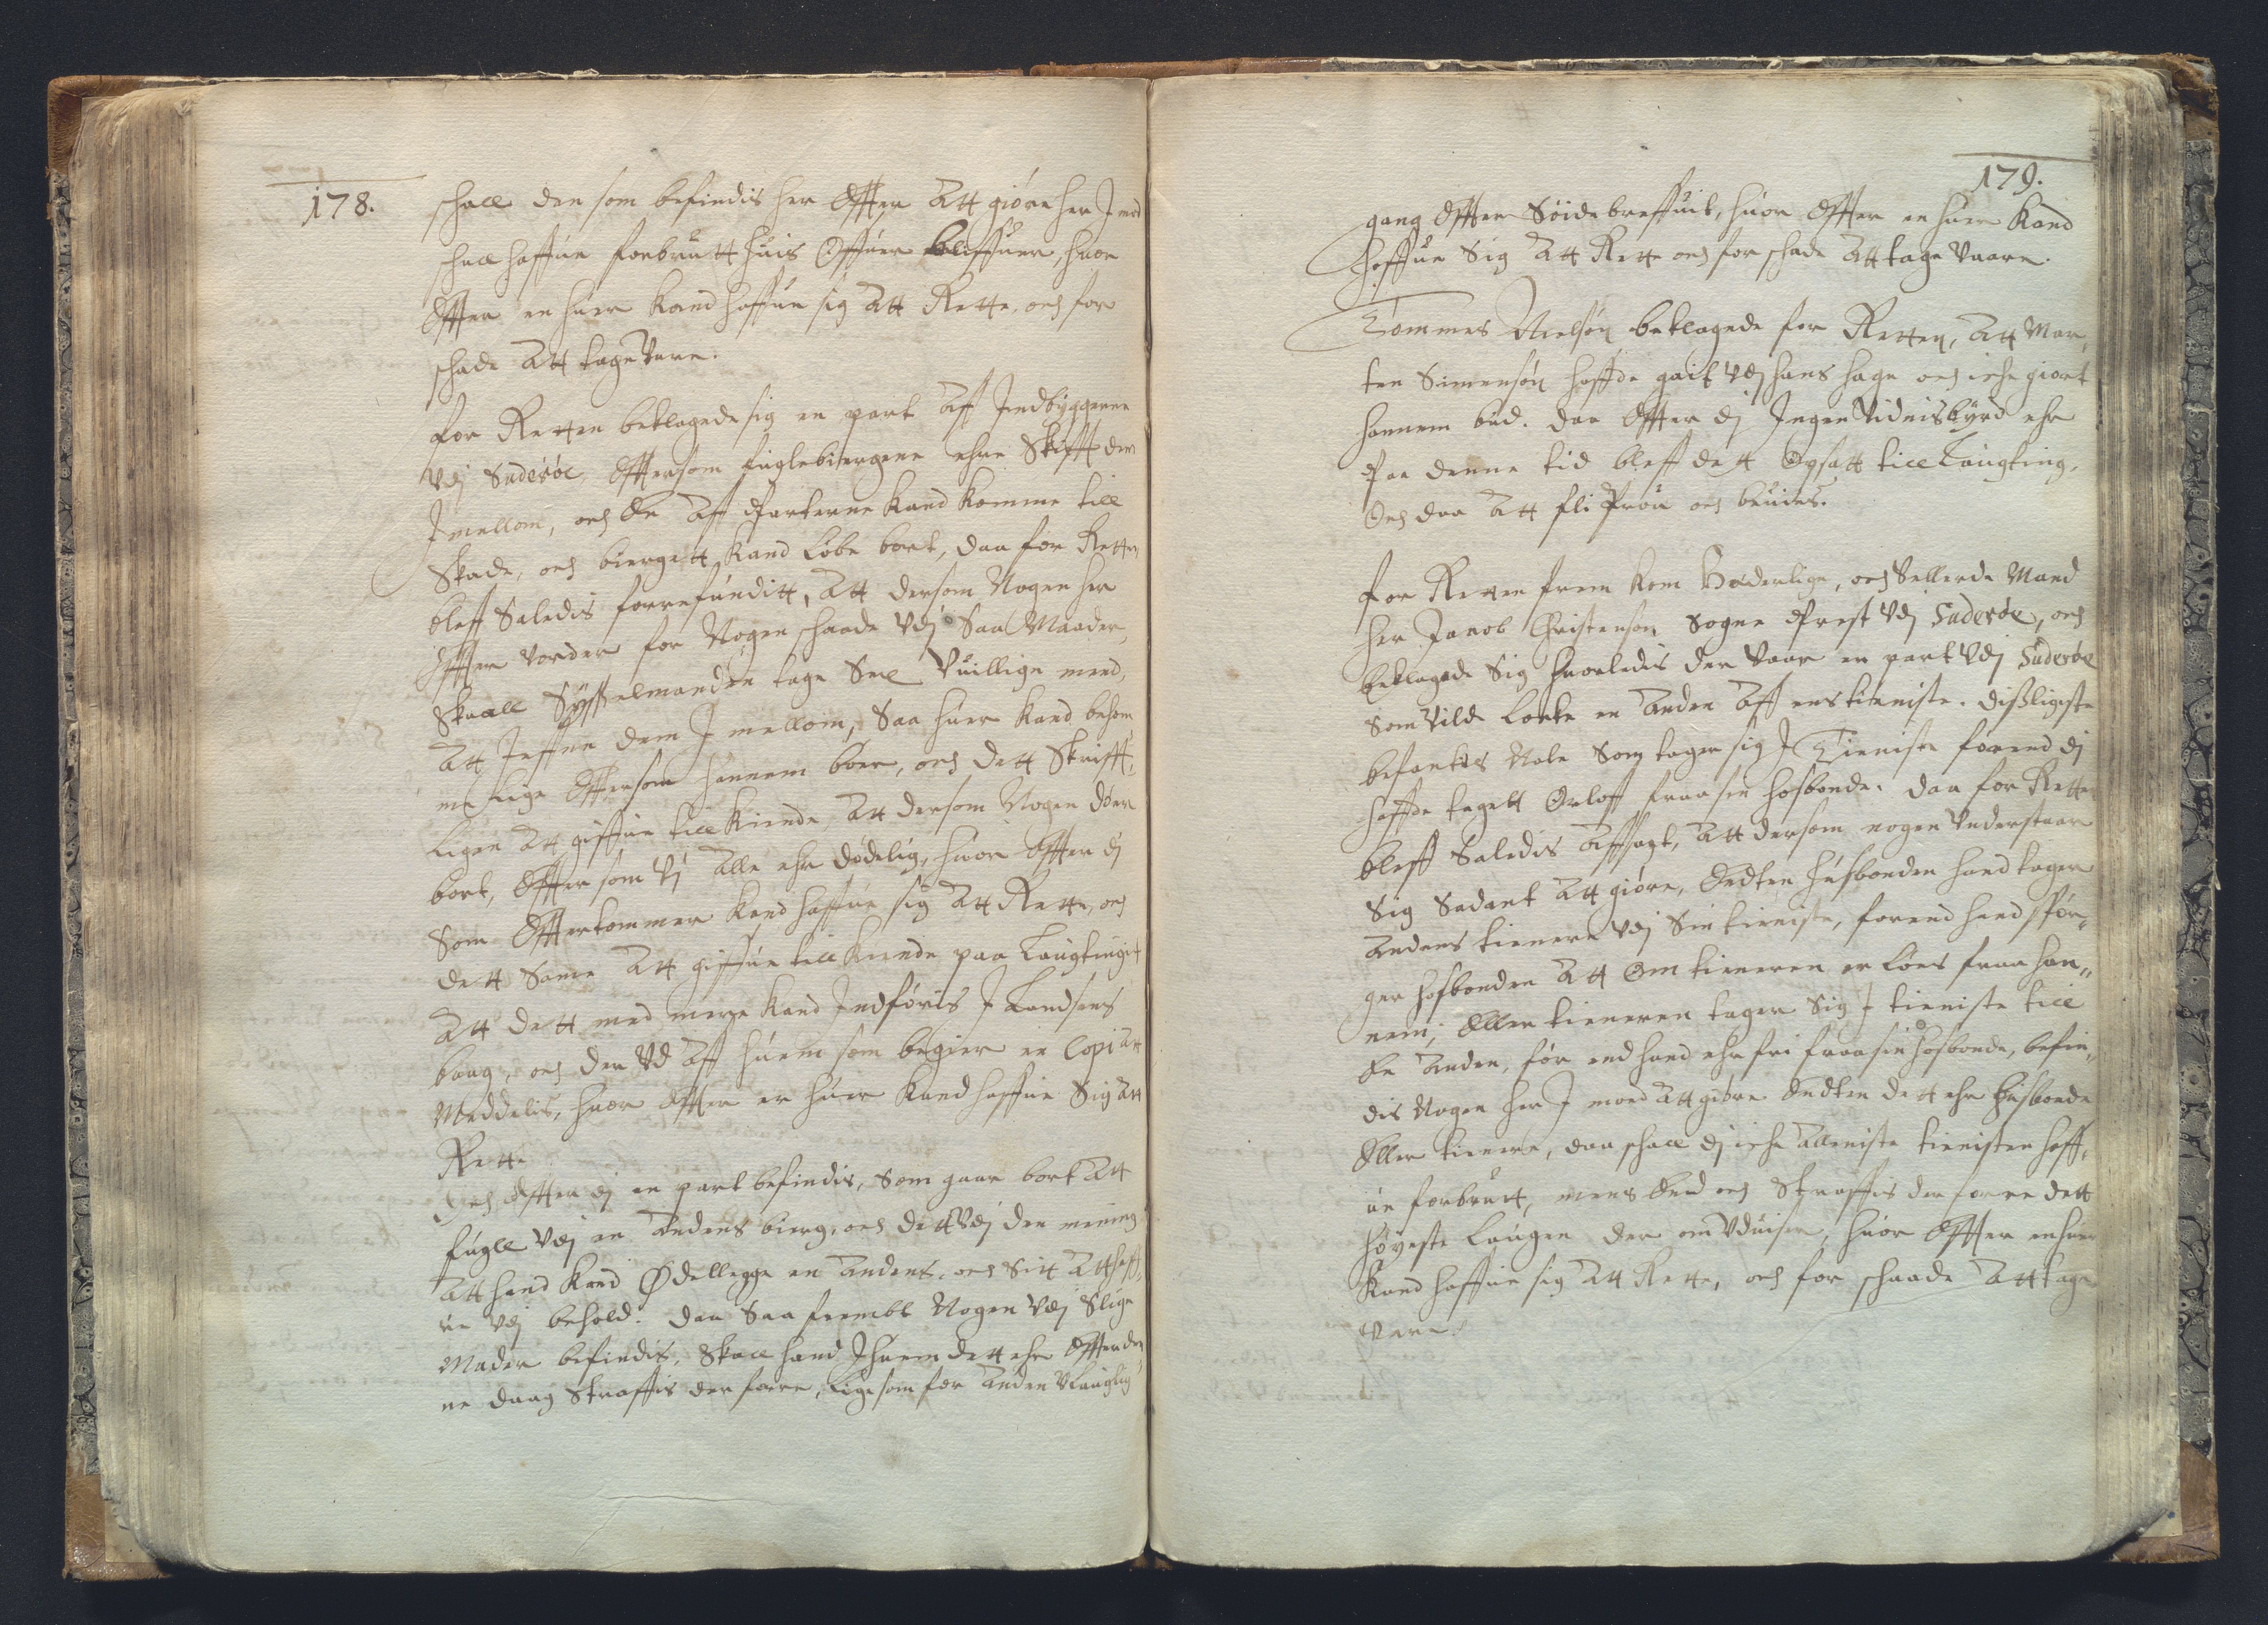 178.
schall den som befindis her Effter Att giøre her Imod
schall haffue forbrutt huis Offuer bliffuer, huor
Effter en huer kand haffue sig Att Rette, och for
schade Att tage Vare.
For Retten beklagede sig en part Aff Indbyggerne
Vdj Suderøe, Effter som fuglebiergene ehre Skifft dem
Imellom, och En Aff Parterne kand komme till
Skade, och biergett kand løbe bort, daa for Retten
bleff Saledis forrefunditt, Att dersom Nogen her
Effter vorder for Nogen schaade Vdj Saa Maader,
Skaall Sysselmanden tage Sex Vuillige mend,
Att Jeffne dem I mellom, Saa huer kand bekom
me lige Effter som hannem bøer, och dett Skrifft,
ligen Att giffue till kiende, Att dersom Nogen døer
bort, Effter som Vj Alle ehr dødelig, huor Effter dj
Som Effterkommer kand haffue sig Att Rette, och
dett Same Att giffue till kiende paa Laugtingit
Att dett med mere kand Indføris I Landsens
boug, och der Vd Aff huem som begier en Copi Att
Meddelis, huor Effter en huer kand haffue Sig Att
Rette
Och Effter dj en part befindis, Som gaar bort Att
fugle Vdj en Andens bierg, och dett Vdj den mening
Att hand kand Ødellegge en Andens, och Sitt Att haff,
ue Vdj behold. Daa Saa frembt Nogen Vdj Slige
Mader befindis, Skall hand I huem dett ehr Effter den,
ne daag Straffis der forre, lige som for Anden Vlauglig
179.
gang Effter Søidebreffuit, huor Effter en huer kand
haffue Sig Att Rette och for schade Att tage Vaare.
Tommes Nielsøn beklagede for Retten, Att Mor,
ten Simensøn haffde gait Vdj hans hage och iche giort
hannem bud. Daa Effter dj Ingen Vidnisbyrd ehr
Paa denne tid bleff dett Opsatt till Laugting,
Och daa Att fli Prou och beuiis.
For Retten frem kom Hæderlige, och Vellerde Mand
her Jacob Christenson Sogne Prest Vdj Suderøe, och
beklagede Sig huorledis der Vaar en part Vdj Suderøe
Som Vilde locke en Anden Aff ens tieniste. Disligeste
befantes Nole Som tager sig I Tieniste førend dj
haffde tagett Orloff fraa sin hosbonde. Daa for Rette
bleff Saledis Affsagt, Att dersom nogen Vnderstaar
Sig Sadant Att giøre, Endten husbonden hand tager
Andens tienere Vdj Sin tieniste, forend hand spør,
ger hosbonden Att Om tieneren er løes fraa han,,
nem, Eller tieneren tager Sig I tieniste till
En Anden, før end hand ehr fri fraa sin hosbonde, befin,
dis Nogen her I moed Att giøre Endten dett ehr Husbonde
Eller tienere, daa schall dj iche Alleniste tienisten haff,
ue forbrutt, mens End och Straffis der forre dett
høyeste Laugen der om Vduiser, huor Effter en huer
kand haffue sig Att Rette, och for schaade Att tage
Vare.